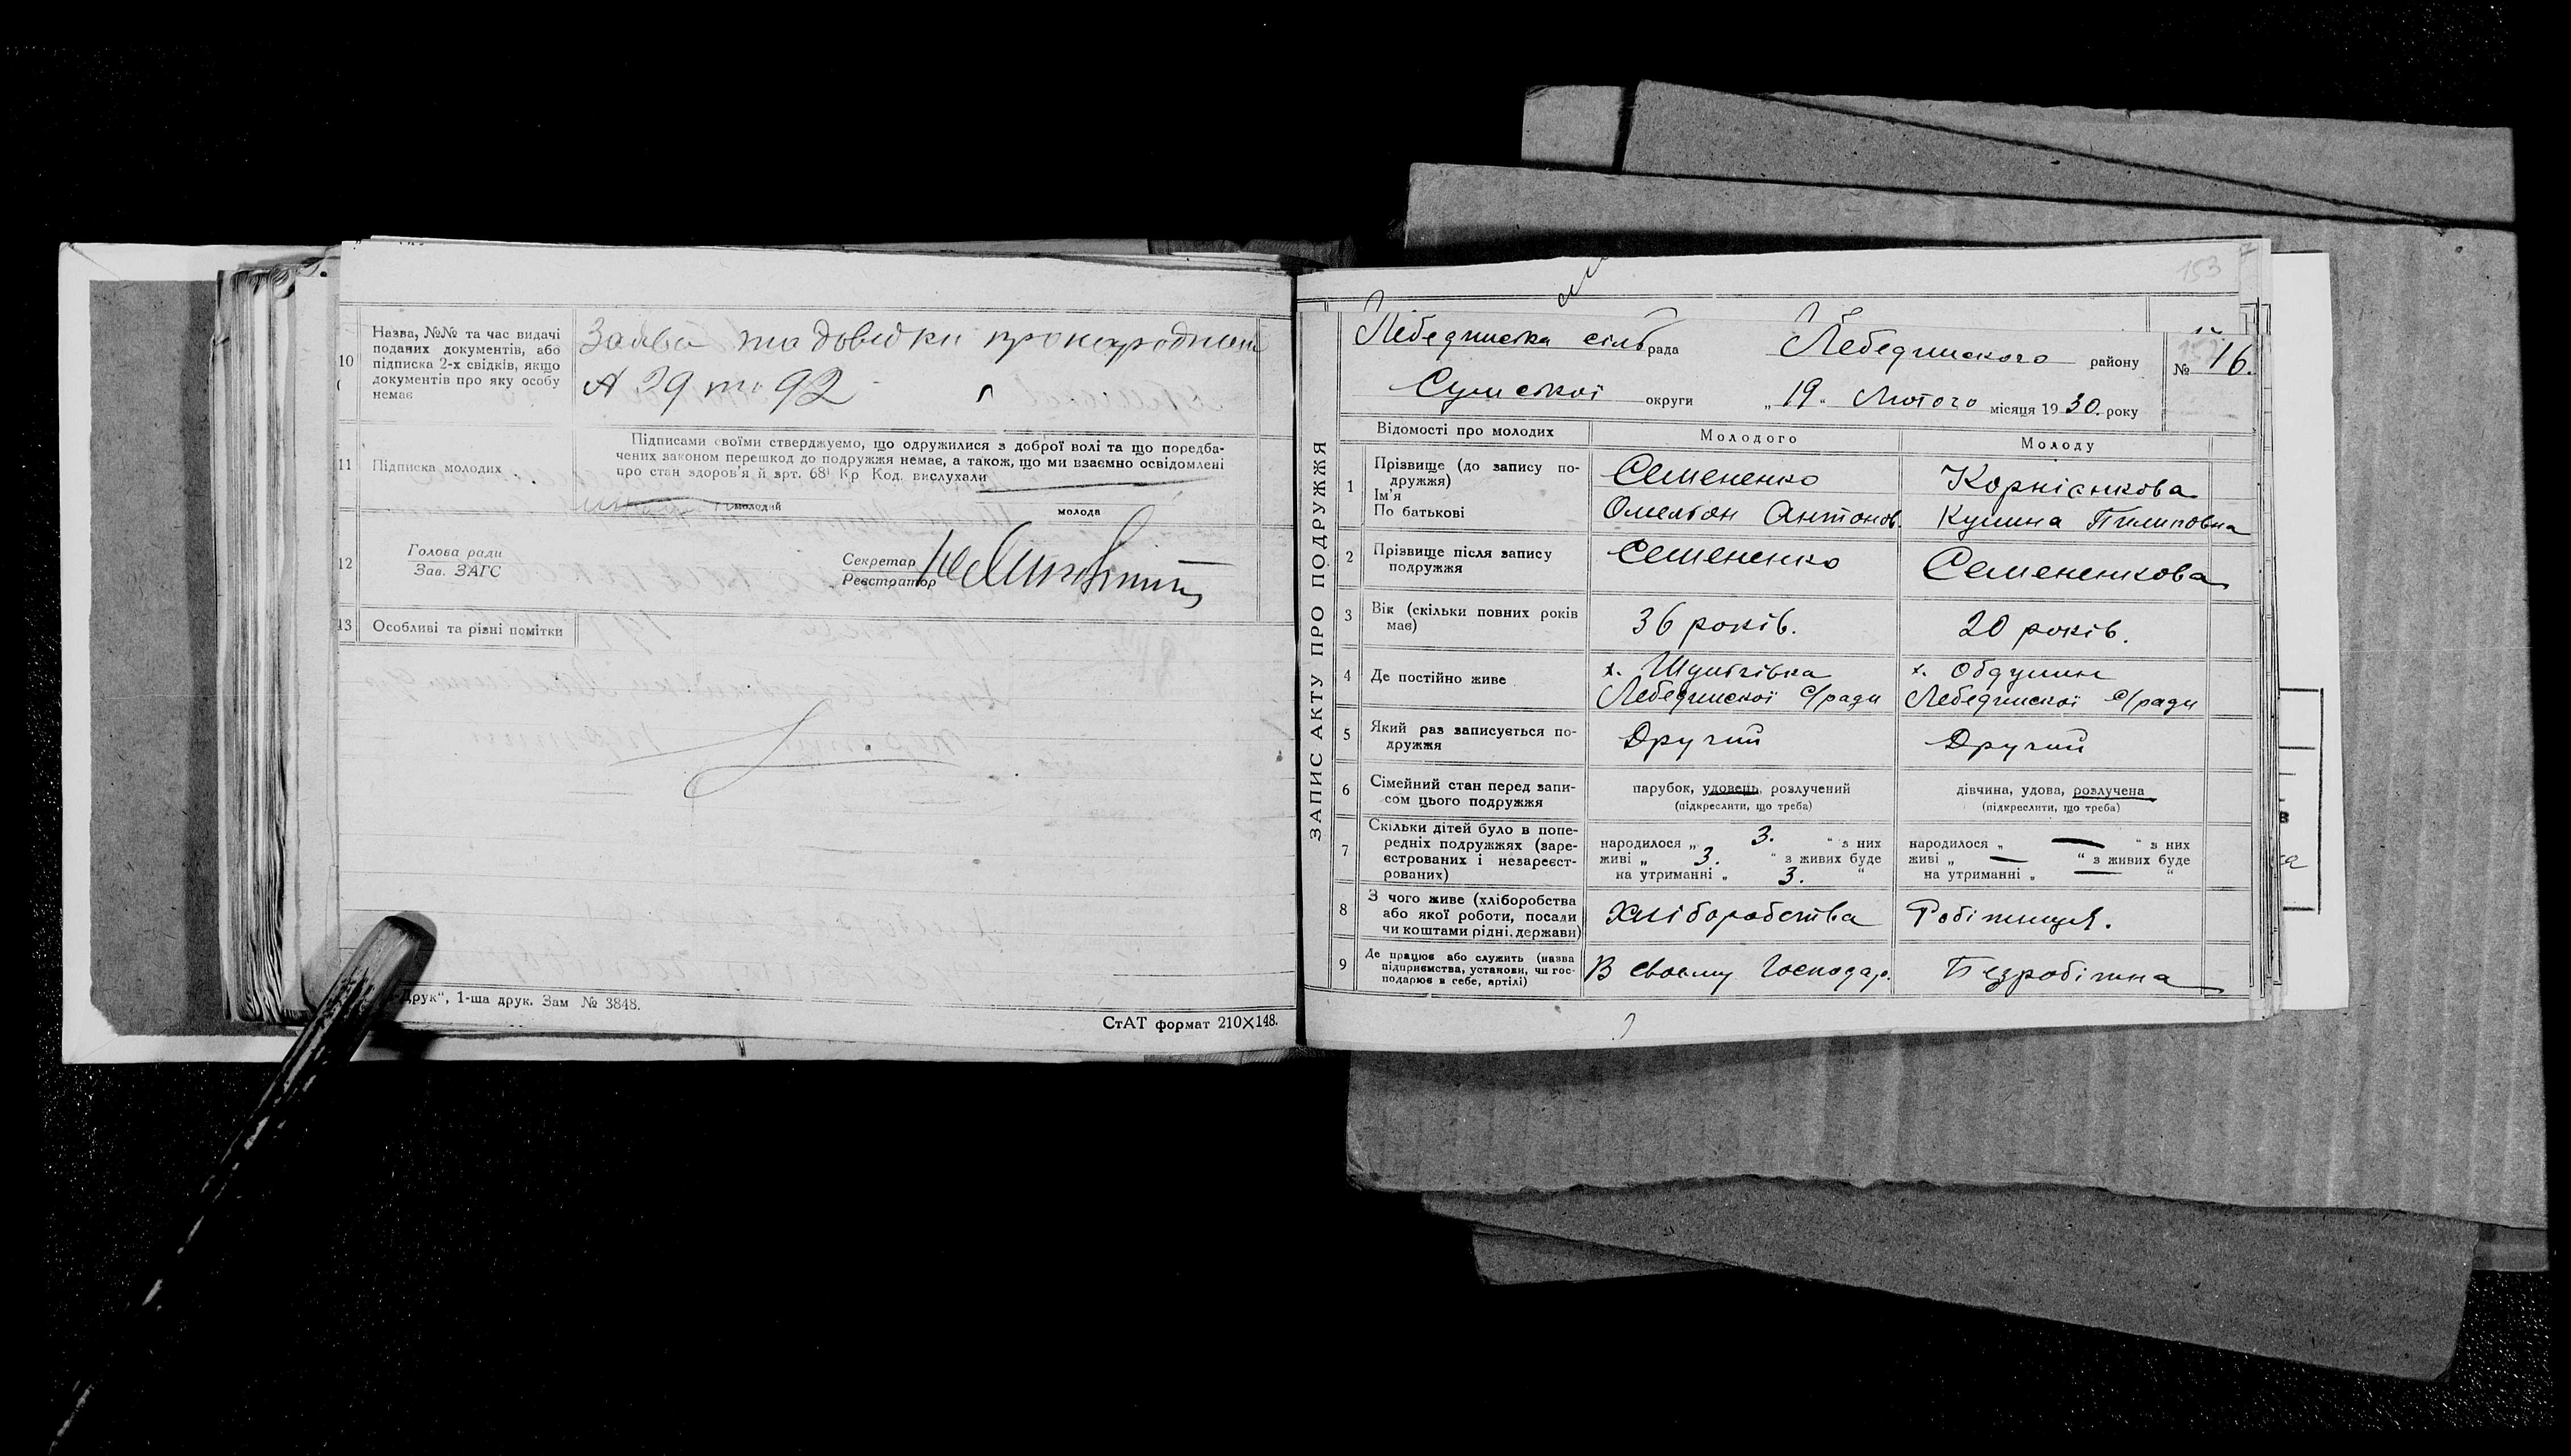 10 Назва, №№ та час видачі
поданих документів, або
підписка 2-х свідків, якщо
документів про яку особу
немає
Заява та довідки про народження
№ 29 та 92
11 Підписка молодих
Підписами своїми стверджуємо, що одружилися з доброї волі та що поредба-
чених законом перешкод до подружжя немає, а також, що ми взаємно освідомлені
про стан здоров'я й врт. 68¹ Кр Код. вислухали
молодий
молода
12 Голова ради
Зав. ЗАГС
Секретар
Реєстратор
13 Особливі та різні помітки
Друк“, 1-ша друк. Зам № 3848.
СтАТ формат 210×148.
153
ЗАПИС АКТУ ПРО ПОДРУЖЖЯ
Лебединська сільрада Лебединського району № 16.
Сумської округи „19“ Лютого місяця 1930. року
Відомості про молодих Молодого Молоду
1 Прізвище (до запису по-
дружжя)
Ім'я
По батькові
Семененко
Омелян Антонов.
Корнієнкова
Пилиповна
2 Прізвище після запису
подружжя
Семененко
Семененкова
3 Вік (скільки повних років
має)
36 років.
20 років.
4 Де постійно живе
х.
Лебединської с/ради
х.
Лебединської с/ради
5 Який раз записується по-
дружжя
Другий
Другий
6 Сімейний стан перед запи-
сом цього подружжя
парубок, удовець, розлучений
(підкреслити, що треба)
дівчина, удова, розлучена
(підкреслити, що треба)
7 Скільки дітей було в попе-
редніх подружжях (заре-
єстрованих і незареєст-
рованих)
народилося „ 3. “ з них
живі „ 3. “ з живих буде
на утриманні „ 3. “
народилося „ — “ з них
живі „ — “ з живих буде
на утриманні „ — “
8 З чого живе (хліборобства
або якої роботи, посади
чи коштами рідні, держави)
Хліборобства
Робітниця.
9 Де працює або служить (назва
підприємства, установи, чи гос-
подарює в себе, артілі)
В своєму Господар.
Безробітна